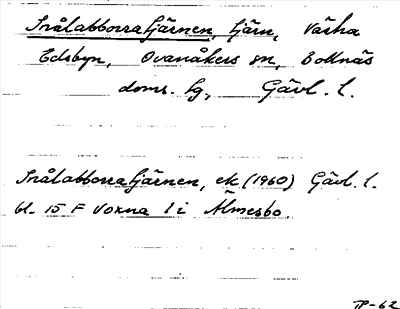 Snålabborratjärnen, tjärn, Västra
Edsbyn, Ovanåkers sn, Bollnäs
doms. lg, Gävl. l.
Snålabborratjärnen, ek (1960) Gävl. l.
bl. 15 F Voxna 1 i Älmesbo.
TP-62